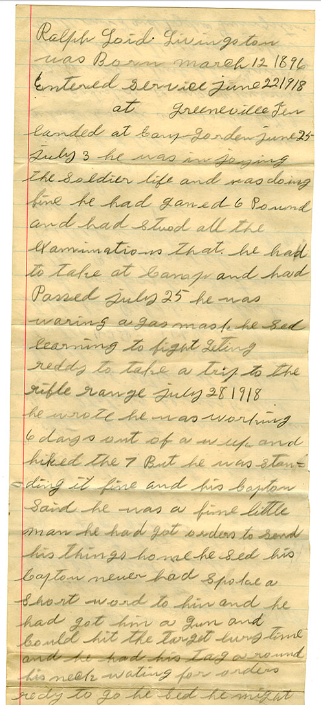 Ralph Loid. Livingston
was Born march 12 1896
Entered Service June 22 1918
at Greeneville Ten
landed at Camp Gorden June 25
July 3 he was in joying
the soldier life and was doing
fine he had ganed 6 Pound
and had stood all the
examinations that he had
to take at Camp and had
Passed July 25 he was
waring a gas mask he sed
learning to fight geting
reddy to take a trip to the
rifle range July 28 1918
he wrote he was working
6 days out of a week and
hiked the 7 But he was stan=
=ding it fine and his Capton
said he was a fine little
man he had got orders to send
his things home he sed his
Capton never had spoke a
short word to him and he
had got him a gun and
Could hit the target evry time
and he had his tag a round
his neck wating for orders
redy to go he sed he might